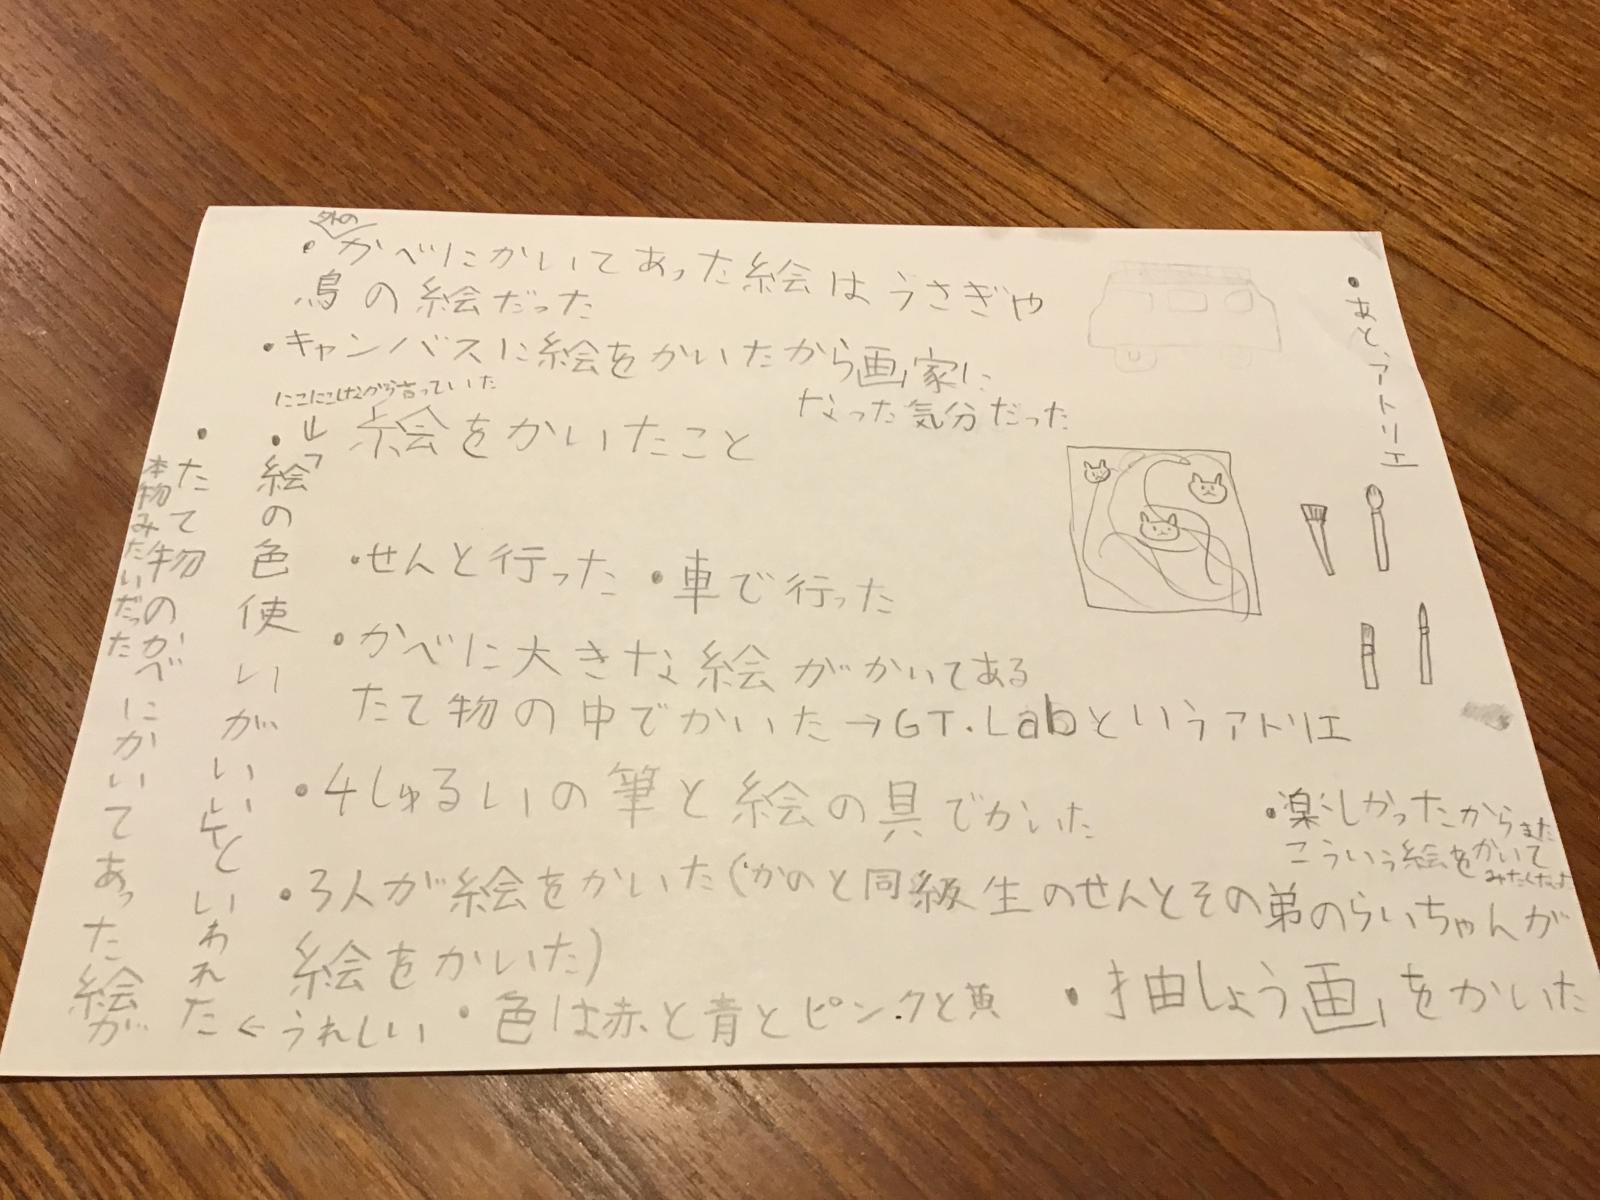 外の
・かべにかいてあった絵はうさぎや
鳥の絵だった
・キャンバスに絵をかいたから画家に
なった気分だった
にこにこしながら言っていた
絵をかいたこと
・せんと行った
・車で行った
・かべに大きな絵がかいてある
たて物の中でかいた→GT.Labというアトリエ
・4しゅるいの筆と絵の具でかいた
・3人が絵をかいた(かのと同級生のせんとその弟のらいちゃんが
絵をかいた)
・色は赤と青とピンクと黄
・抽しょう画をかいた
・楽しかったからまた
こういう絵をかいて
みたくなった
・あと、アトリエ
・「絵の色使いがいい」といわれた
←うれしい
・たて物のかべにかいてあった絵が
本物みたいだった